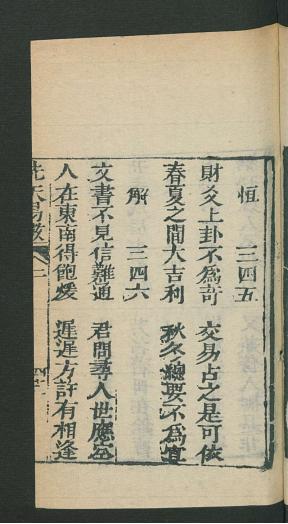 恒 三四五
財爻上卦不為苛 交易占之是可依
春夏之間大吉利 秋冬總要不為宜
解 三四六
文書不見信難通 君問尋人世應空
人在東南得飽煖 遲遲方許有相逢
先天易數 二